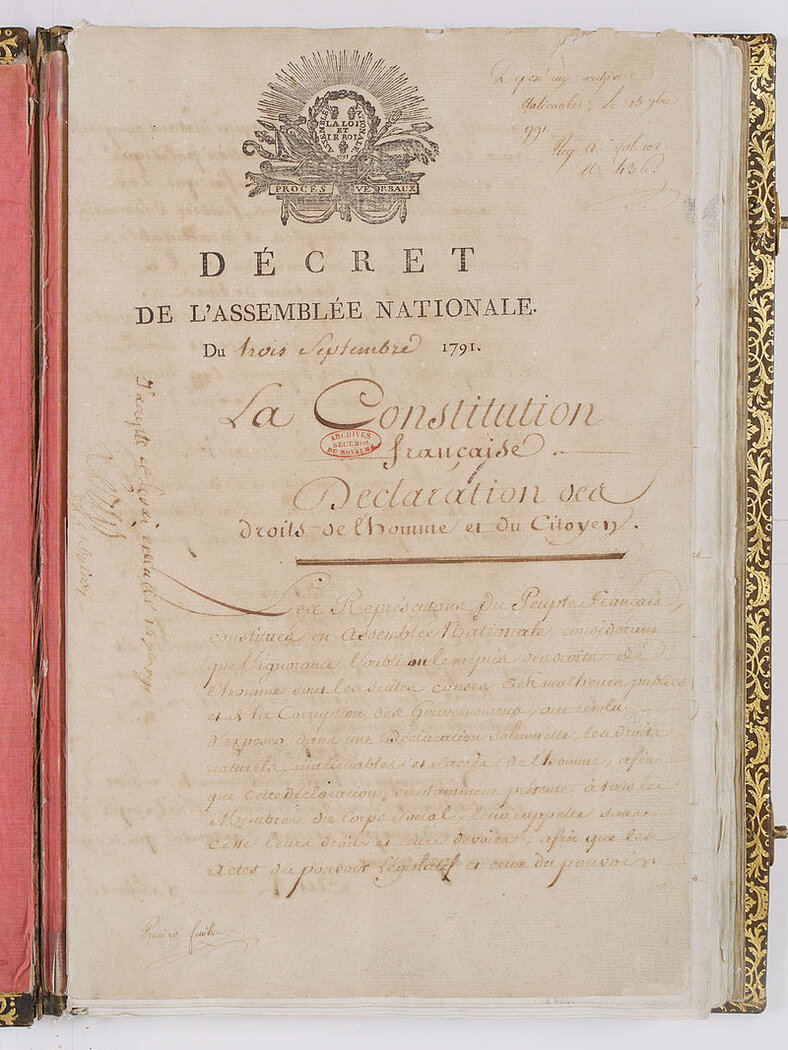 ASSEMBLÉE NATIONALE
LA LOI
ET
LE ROI
1791
PROCÈS VERBAUX
Déposé aux archives
Nationales, le 13 7bre
1791.
Reg. A. fol. 
N.º 436.
DÉCRET
DE L'ASSEMBLÉE NATIONALE.
Du trois Septembre 1791.
La Constitution
française.
ARCHIVES
SECT. HIST.
DU ROYAUME
Déclaration des
droits de l'homme et du Citoyen.
J'accepte et ferai exécuter 14 7bre 1791
Les Représentans du Peuple Français,
constitués en Assemblée Nationale, considérant
que l'ignorance, l'oubli ou le mépris des droits de
l'homme sont les seules causes des malheurs publics
et de la Corruption des Gouvernemens, ont résolu
d'exposer, dans une Déclaration solemnelle, les droits
naturels, inaliénables et sacrés de l'homme, afin
que cette déclaration, constamment présente à tous les
Membres du Corps Social, leur rappelle sans
cesse leurs droits et leurs devoirs; afin que les
Actes du pouvoir Législatif et ceux du pouvoir
Premier feuillet